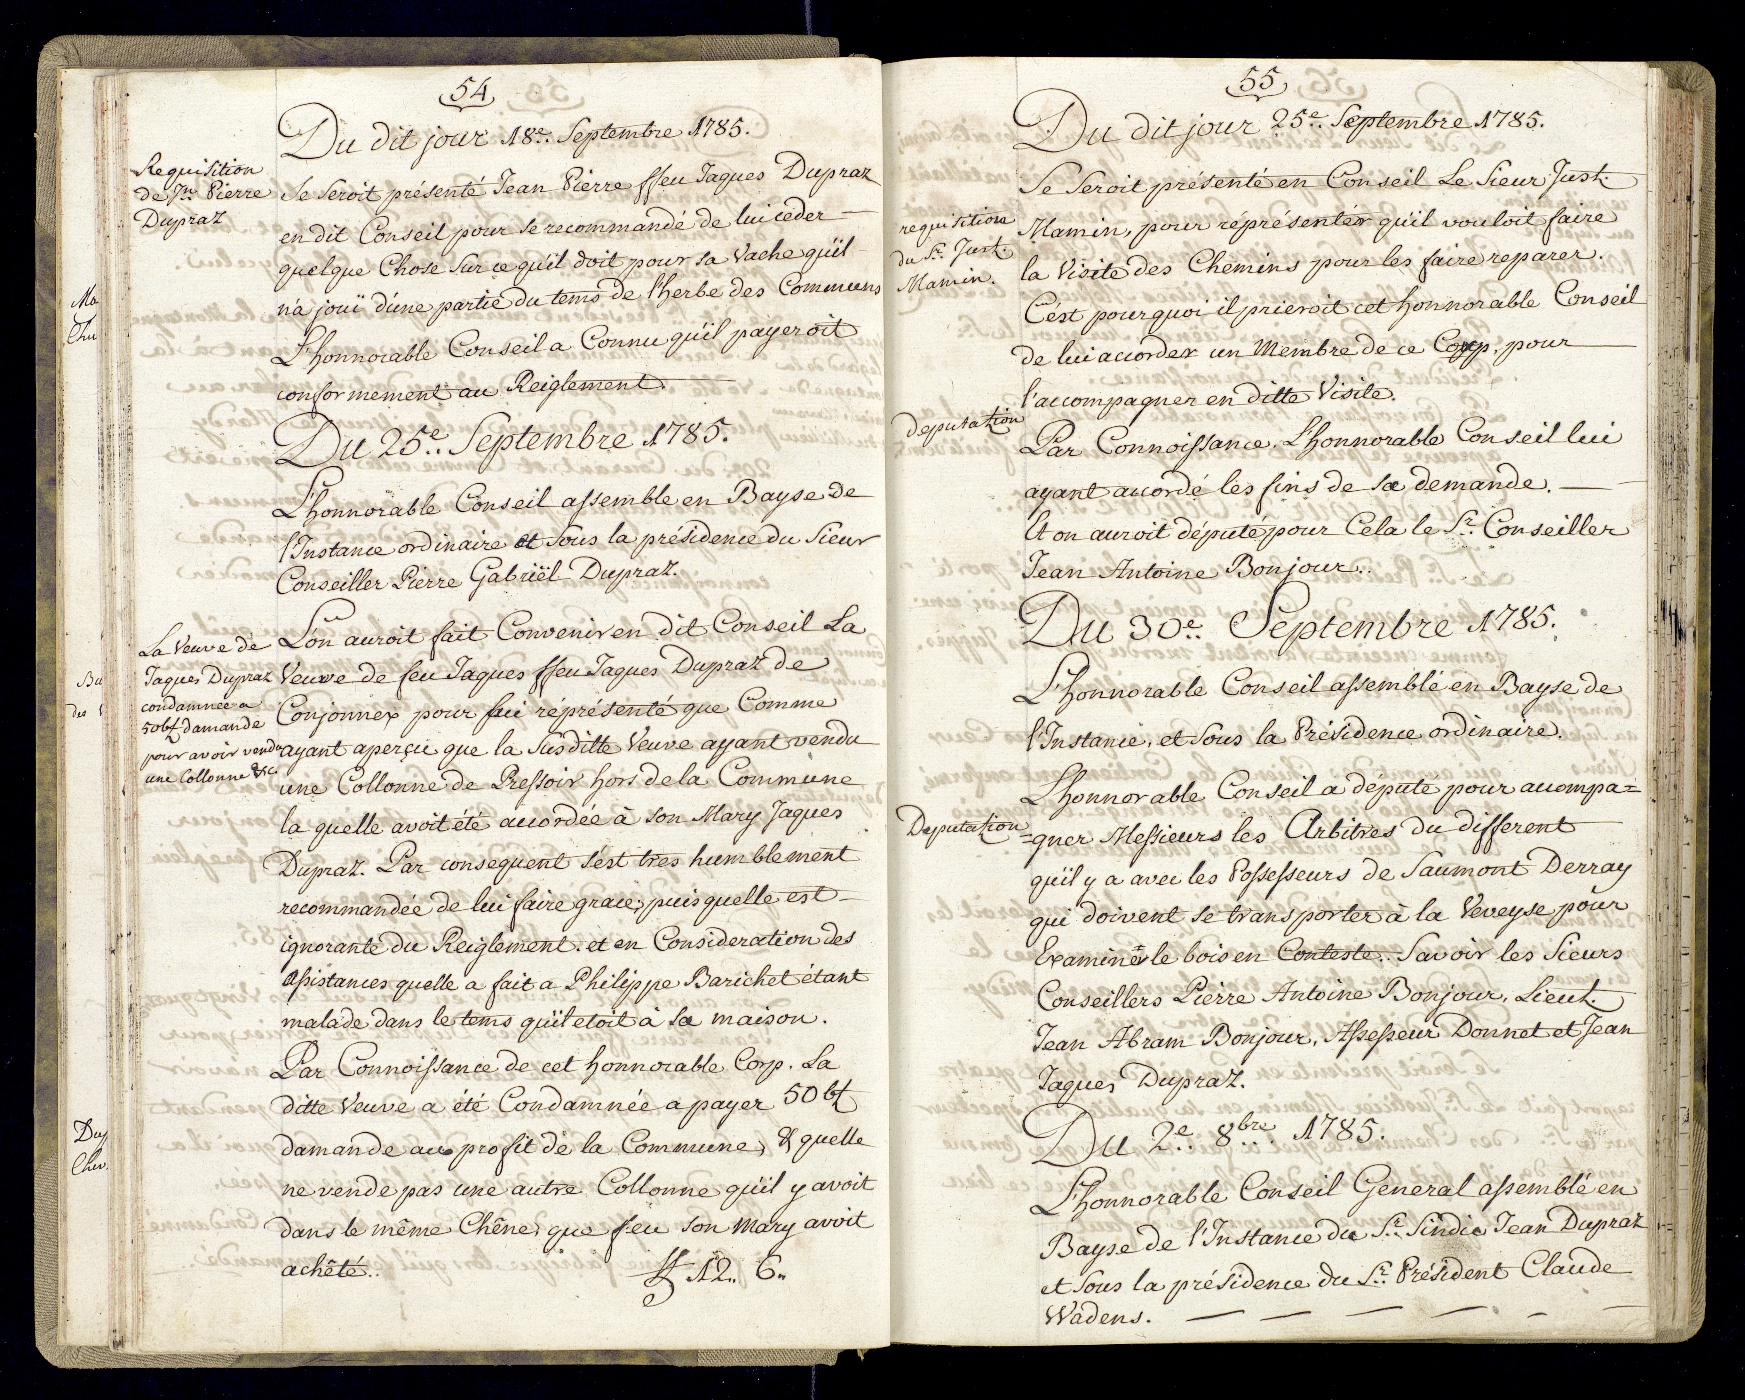 54
Du dit jour 18e. Septembre 1785.
Requisition
de Jn. Pierre
Dupraz
Se seroit présenté Jean Pierre ffeu Jaques Dupraz
en dit Conseil pour se recommandé de lui ceder
quelque Chose sur ce qu'il doit pour sa Vache qu'il
n'a jouï d'une partie du tems de l'herbe des Communs
L'honnorable Conseil a Connu qu'il payeroit
conformement au Reiglement.
Du 25e. Septembre 1785.
L'honnorable Conseil assemble en Bayse de
l'Instance ordinaire et sous la présidence du Sieur
Conseiller Pierre Gabriël Dupraz.
La Veuve de
Jaques Dupraz
condamnée a
50 bt damande
pour avoir vendu
une Collonne &c.
L'on auroit fait Convenir en dit Conseil La
Veuve de feu Jaques ffeu Jaques Dupraz de
Conjonnex pour lui réprésenté que Comme
ayant aperçu que la susditte Veuve ayant vendu
une Collonne de Pressoir hors de la Commune
la quelle avoit été accordée à son Mary Jaques
Dupraz. Par consequent s'est tres humblement
recommandée de lui faire grace, puisquelle est
ignorante du Reiglement. et en Consideration des
assistances quelle a fait a Philippe Barichet étant
malade dans le tems qu'il etoit à sa maison.
Par Connoissance de cet honnorable Corp. La
ditte Veuve a été Condamnée a payer 50 bt
damande au profit de la Commune, & quelle
ne vende pas une autre Collonne qu'il y avoit
dans le même Chêne, que feu son Mary avoit
achêté.. ff 12.. 6..
55
Du dit jour 25e. Septembre 1785.
requisition
du Sr. Just.
Mamin.
Se seroit présenté en Conseil Le Sieur Just.
Mamin, pour réprésenter qu'il vouloit faire
la Visite des Chemins pour les faire reparer.
C'est pourquoi il prieroit cet honnorable Conseil
de lui accorder un Membre de ce Corp. pour
l'accompagner en ditte Visite.
Deputation
Par Connoissance. L'honnorable Conseil lui
ayant accordé les fins de sa demande.
Et on auroit député pour Cela le Sr. Conseiller
Jean Antoine Bonjour..
Du 30e. Septembre 1785.
L'honnorable Conseil assemblé en Bayse de
l'Instance, et sous la Présidence ordinaire.
Deputation
L'honnorable Conseil a député pour accompa=
=gner Messieurs les Arbitres du different
qu'il y a avec les Possesseurs de Saumont Derray
qui doivent se transporter à la Veveyse pour
Examiner le bois en Conteste.. Savoir les Sieurs
Conseillers Pierre Antoine Bonjour, Lieut.
Jean Abram Bonjour, Assesseur Donnet et Jean
Jaques Dupraz.
Du 2e. 8bre. 1785.
L'honnorable Conseil General assemblé en
Bayse de l'Instance du Sr. Sindic Jean Dupraz
et sous la présidence du Sr. Président Claude
Wadens.